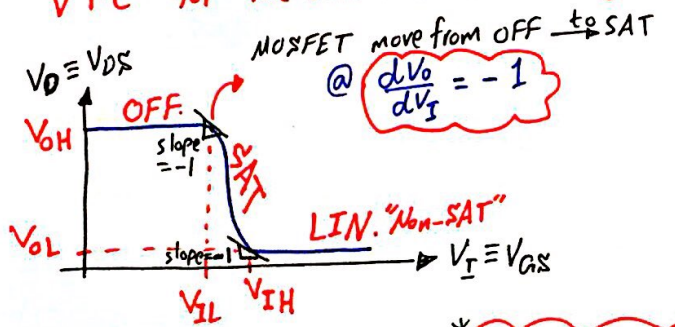 MOSFET move from OFF to SAT
@ dVo/dVI = -1
VO ≡ VDS
OFF.
VOH
slope
=-1
SAT
LIN. "Non-SAT"
VOL
slope=-1
VI ≡ VGS
VIL
VIH
*